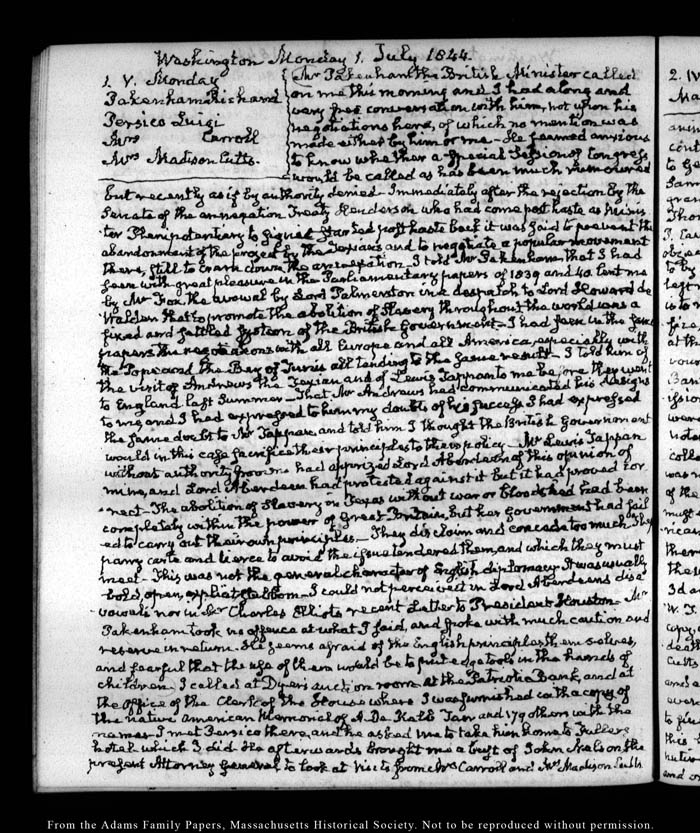 Washington Monday 1. July 1844.
1. V. Monday
Pakenham Richard
Persico Luigi
Mrs Carroll
Mrs Madison Cutts.
Mr Pakenham the British Minister called
on me this morning and I had a long and
very free conversation with him, not upon his
negotiations here, of which no mention was
made either by him or me - He seemed anxious
to know whether a Special Session of Congress
would be called as has been much rumoured
but recently as if by authority denied - Immediately after the rejection by the
Senate of the annexation Treaty Henderson who had come post haste as Minis
ter Plenipotentiary to signed started post haste back it was said to prevent the
abandonment of the project by the Texians and to negotiate a popular movement
there, still to cram down the annexation. I told Mr Pakenham that I had
seen with great pleasure in the Parliamentary papers of 1839 and 40 lent me
by Mr Fox the avowal by Lord Palmerston in a despatch to Lord Howard de
Walden that to promote the abolition of Slavery throughout the world was a
fixed and settled system of the British Government - I had seen in the same
papers the negotiations with all Europe and all America, especially with
the Pope and the Bey of Tunis all tending to the same result - I told him of
the visit of Andrews the Texian and of Lewis Tappan to me before they went
to England last Summer - That Mr Andrews had communicated his designs
to me and I had expressed to him my doubts of his success. I had expressed
the same doubt to Mr Tappan and told him I thought the British Government
would in this case sacrifice their principles to their policy - Mr Lewis Tappan
without authority from me had apprized Lord Aberdeen of this opinion of
mine, and Lord Aberdeen had protested against it but it had proved cor
rect - The abolition of Slavery in Texas without war or bloodshed had been
completely within the power of Great Britain, but her government had fail
ed to carry out their own principles - They disclaim and concede too much They
parry carte and tierce to avoid the issue tendered them, and which they must
meet - This was not the general character of English diplomacy It was usually
bold, open, explicit - I could not perceive it in Lord Aberdeens disa
vowals nor in Mr Charles Elliots recent Letter to President Houston - Mr
Pakenham took no offence at what I said, and spoke with much caution and
reserve in return. He seems afraid of the English principles themselves,
and fearful that the use of them would be to put edge tools in the hands of
children. I called at Dyer's auction room at the Patriotic Bank, and at
the office of the Clerk of the House where I was furnished with a copy of
the native American Memorial of A. De Kalb Tarr and 179 others with the
names I met Persico there, and he asked me to take him home to Fullers
hotel which I did He afterwards brought me a bust of John Nelson the
present Attorney General to look at visits from Mrs Carroll and Mrs Madison Cutts
2. IV
From the Adams Family Papers, Massachusetts Historical Society. Not to be reproduced without permission.